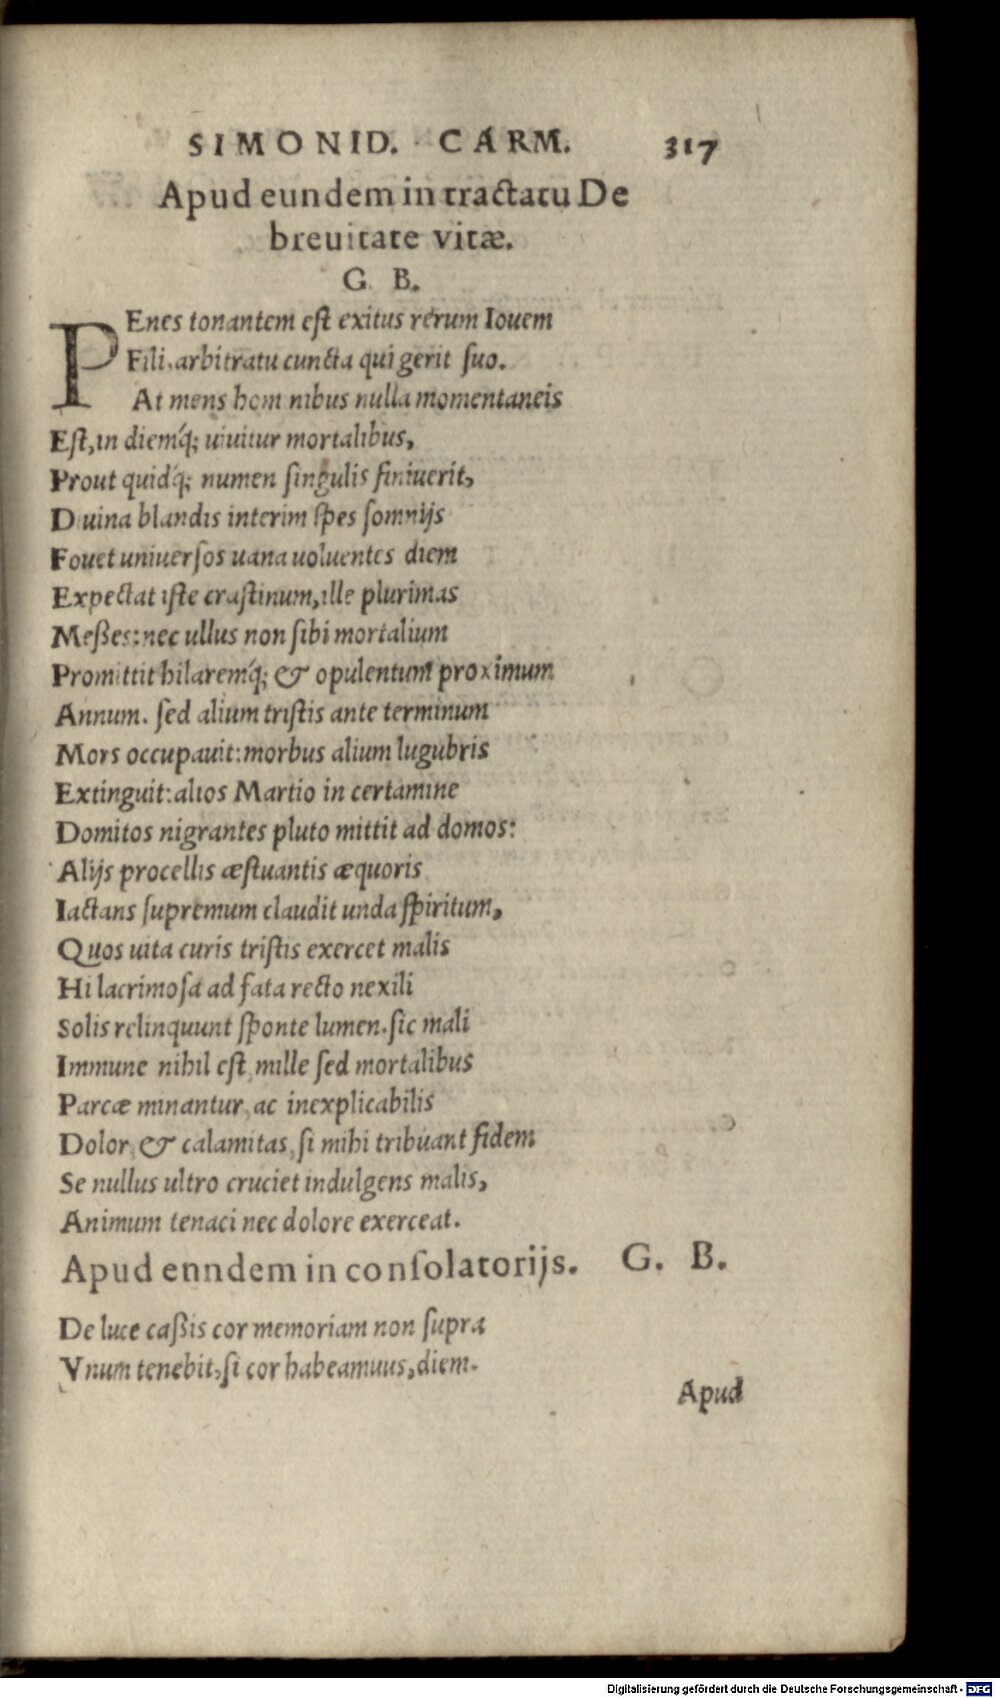 SIMONID. CARM. 317
Apud eundem in tractatu De
breuitate vitæ.
G. B.
PEnes tonantem est exitus rerum Iouem
Fili, arbitratu cuncta qui gerit suo.
At mens hominibus nulla momentaneis
Est, in diemq́; uiuitur mortalibus,
Prout quidq́; numen singulis finiuerit,
Diuina blandis interim spes somnijs
Fouet uniuersos uana uoluentes diem
Expectat iste crastinum, ille plurimas
Meßes: nec ullus non sibi mortalium
Promittit hilaremq́; & opulentum proximum
Annum. sed alium tristis ante terminum
Mors occupauit: morbus alium lugubris
Extinguit: alios Martio in certamine
Domitos nigrantes pluto mittit ad domos:
Alijs procellis æstuantis æquoris
Iactans supremum claudit unda spiritum,
Quos uita curis tristis exercet malis
Hi lacrimosa ad fata recto nexili
Solis relinquunt sponte lumen. sic mali
Immune nihil est, mille sed mortalibus
Parcæ minantur, ac inexplicabilis
Dolor, & calamitas, si mihi tribuant fidem
Se nullus ultro cruciet indulgens malis,
Animum tenaci nec dolore exerceat.
Apud enndem in consolatorijs. G. B.
De luce caßis cor memoriam non supra
Vnum tenebit, si cor habeamuus, diem.
Apud
Digitalisierung gefördert durch die Deutsche Forschungsgemeinschaft - DFG